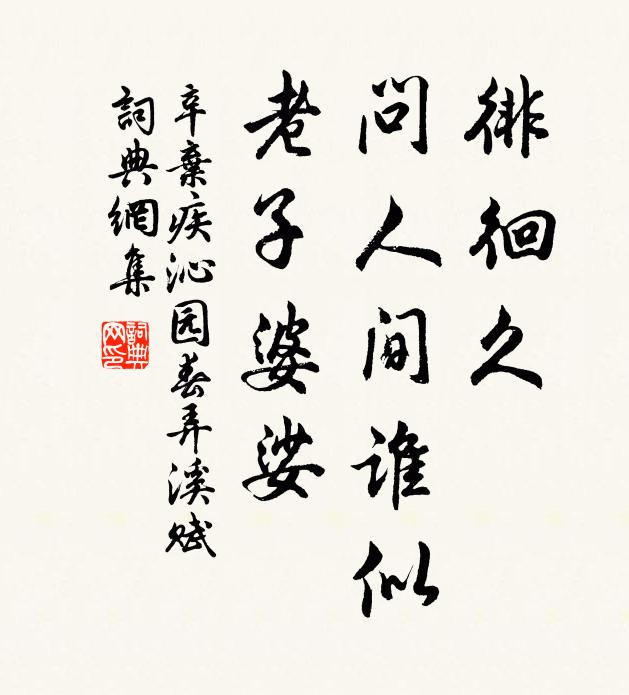 徘徊久
问人间谁似
老子婆娑
辛棄疾沁园春弄溪赋
詞典網集
詞典网印